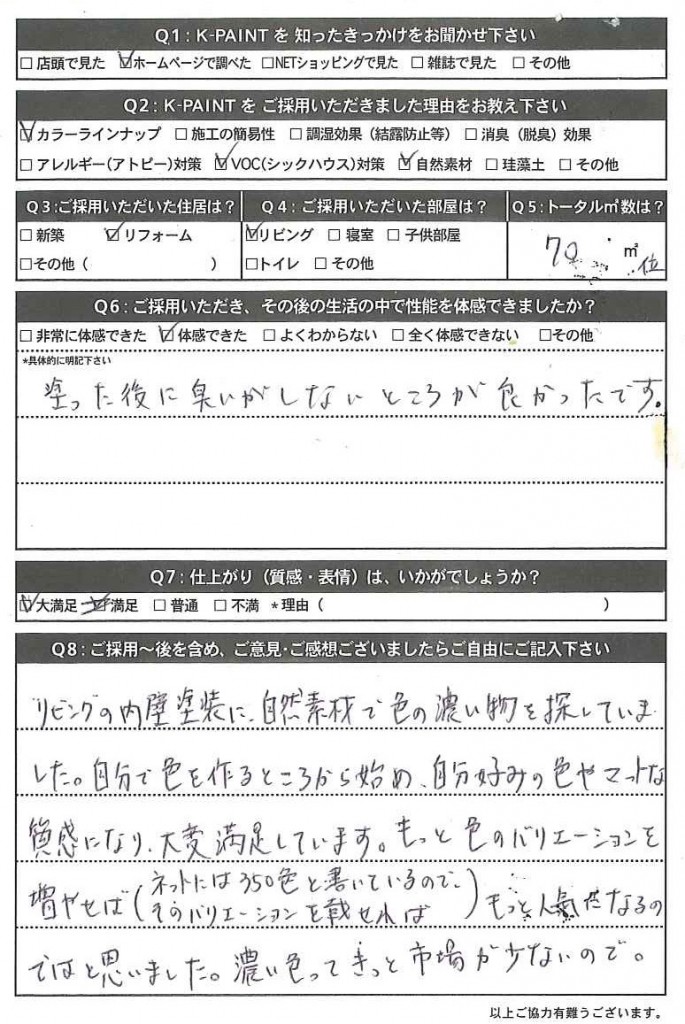 Q1：K-PAINTを 知ったきっかけをお聞かせ下さい
□店頭で見た ☑ホームページで調べた □NETショッピングで見た □雑誌で見た □その他
Q2：K-PAINTを ご採用いただきました理由をお教え下さい
☑カラーラインナップ □施工の簡易性 □調湿効果（結露防止等） □消臭（脱臭）効果
□アレルギー（アトピー）対策 ☑VOC(シックハウス)対策 ☑自然素材 □珪藻土 □その他
Q3：ご採用いただいた住居は？
□新築 ☑リフォーム
□その他（ ）
Q4：ご採用いただいた部屋は？
☑リビング □寝室 □子供部屋
□トイレ □その他
Q5：トータル㎡数は？
70 ㎡位
Q6：ご採用いただき、その後の生活の中で性能を体感できましたか？
□非常に体感できた ☑体感できた □よくわからない □全く体感できない □その他
*具体的に明記下さい
塗った後に臭いがしないところが良かったです。
Q7：仕上がり（質感・表情）は、いかがでしょうか？
☑大満足 ☑満足 □普通 □不満 *理由（ ）
Q8：ご採用～後を含め、ご意見・ご感想ございましたらご自由にご記入下さい
リビングの内壁塗装に、自然素材で色の濃い物を探していま
した。自分で色を作るところから始め、自分好みの色やマットな
質感になり、大変満足しています。もっと色のバリエーションを
増やせば（ネットには350色と書いているので、
そのバリエーションを載せれば）もっと人気になるの
ではと思いました。濃い色ってきっと市場が少ないので。
以上ご協力有難うございます。